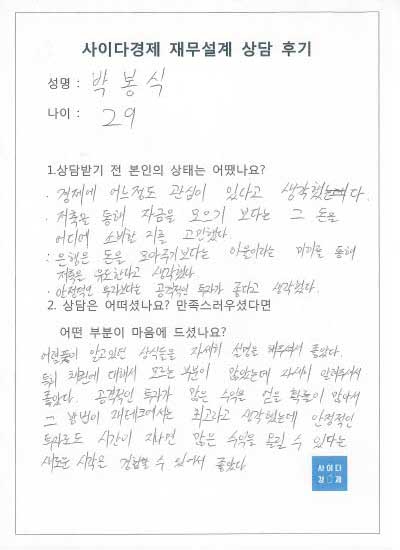 사이다경제 재무설계 상담 후기
성명 : 박봉식
나이 : 29
1.상담받기 전 본인의 상태는 어땠나요?
· 경제에 어느정도 관심이 있다고 생각했다.
· 저축을 통해 자금을 모으기 보다는 그 돈을
어디에 소비할 지를 고민했다.
· 은행은 돈을 모아주기보다는 이윤이라는 미끼를 통해
저축을 유도한다고 생각했다.
· 안정적인 투자보다는 공격적인 투자가 좋다고 생각했다.
2. 상담은 어떠셨나요? 만족스러우셨다면
어떤 부분이 마음에 드셨나요?
어렴풋이 알고있던 상식들을 자세히 설명을 해주셔서 좋았다.
특히 대해서 모르는 부분이 많았는데 자세히 알려주셔서
좋았다. 공격적인 투자가 많은 수익을 얻을 확률이 많아서
그 방법이 재테크에서는 최고라고 생각했는데 안정적인
투자로도 시간이 지나면 많은 수익을 올릴 수 있다는
새로운 시각을 경험할 수 있어서 좋았다
사이다
경제